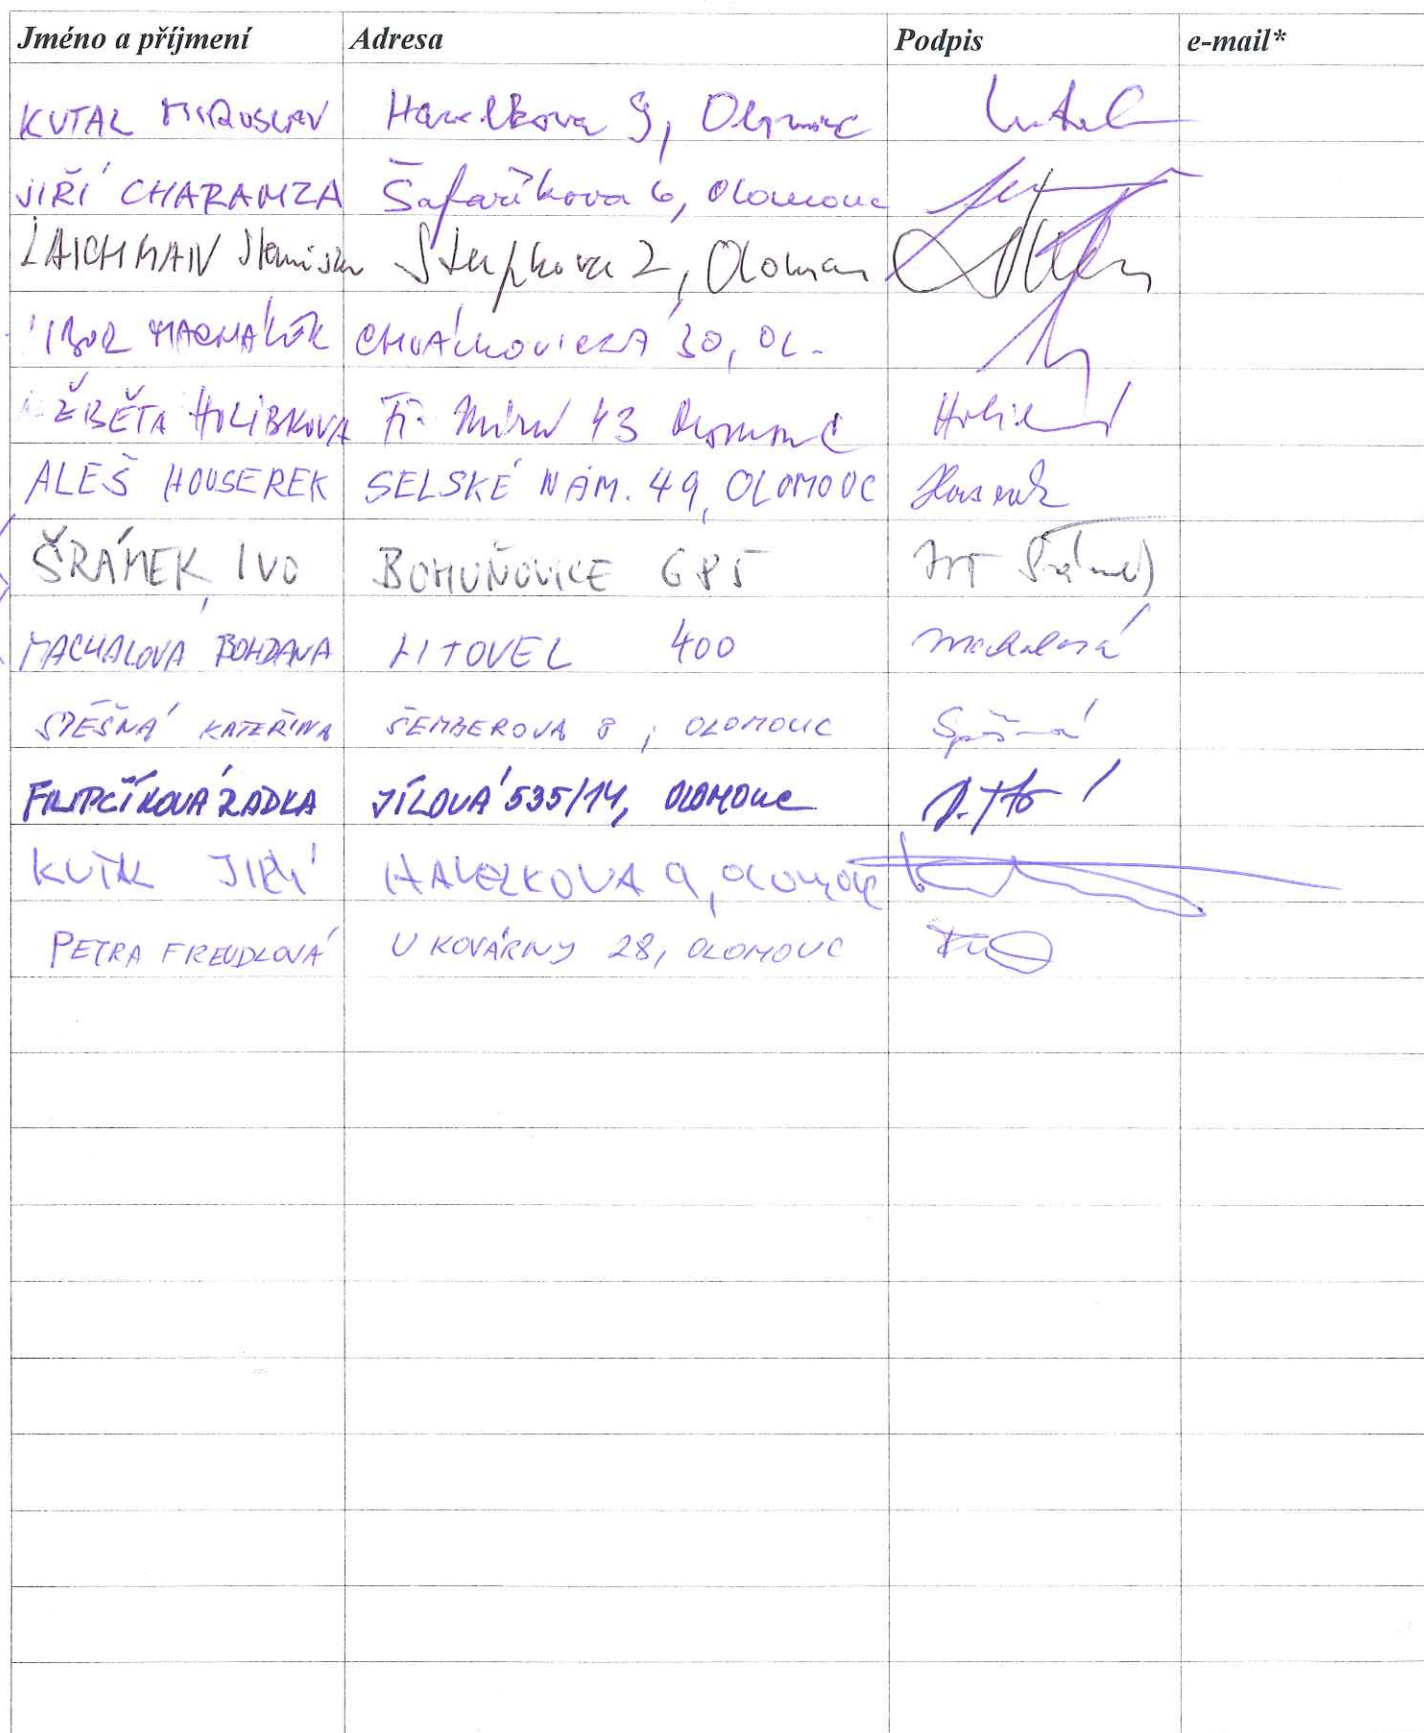 Jméno a příjmení Adresa Podpis e-mail*
KUTAL MIROSLAV Havelkova 9, Olomouc Kutal
JIŘÍ CHARAMZA Šafaříkova 6, Olomouc
LAICHMAN Stanislav 2, Olomouc
MACHÁLEK CHVÁLKOVICKÁ 30, OL.
ŽBĚTA HOLIBKOVÁ Tř. Míru 43 Olomouc
ALEŠ HOUSEREK SELSKÉ NÁM. 49, OLOMOUC Houserek
ŠRÁMEK IVO BOHUŇOVICE 685 Šrámek
MACHALOVÁ BOHDANA LITOVEL 400 Machalová
SPĚŠNÁ KATEŘINA ŠEMBEROVA 8, OLOMOUC Spěšná
FILIPČÍKOVÁ RADKA JÍLOVÁ 535/14, OLOMOUC
KUTAL JIŘÍ HAVELKOVA 9, OLOMOUC
PETRA FREUDLOVÁ U KOVÁRNY 28, OLOMOUC